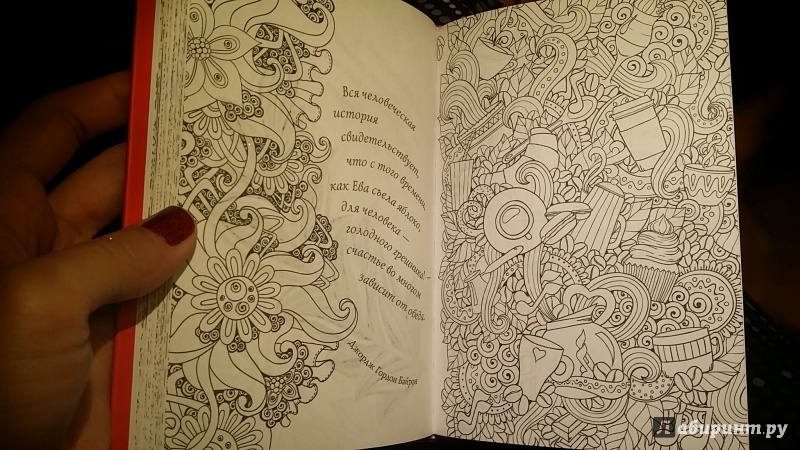 Вся человеческая
история
свидетельствует,
что с того времени,
как Ева съела яблоко,
для человека —
голодного грешника! —
счастье во многом
зависит от обеда.
Джордж Гордон Байрон
Лабиринт.ру